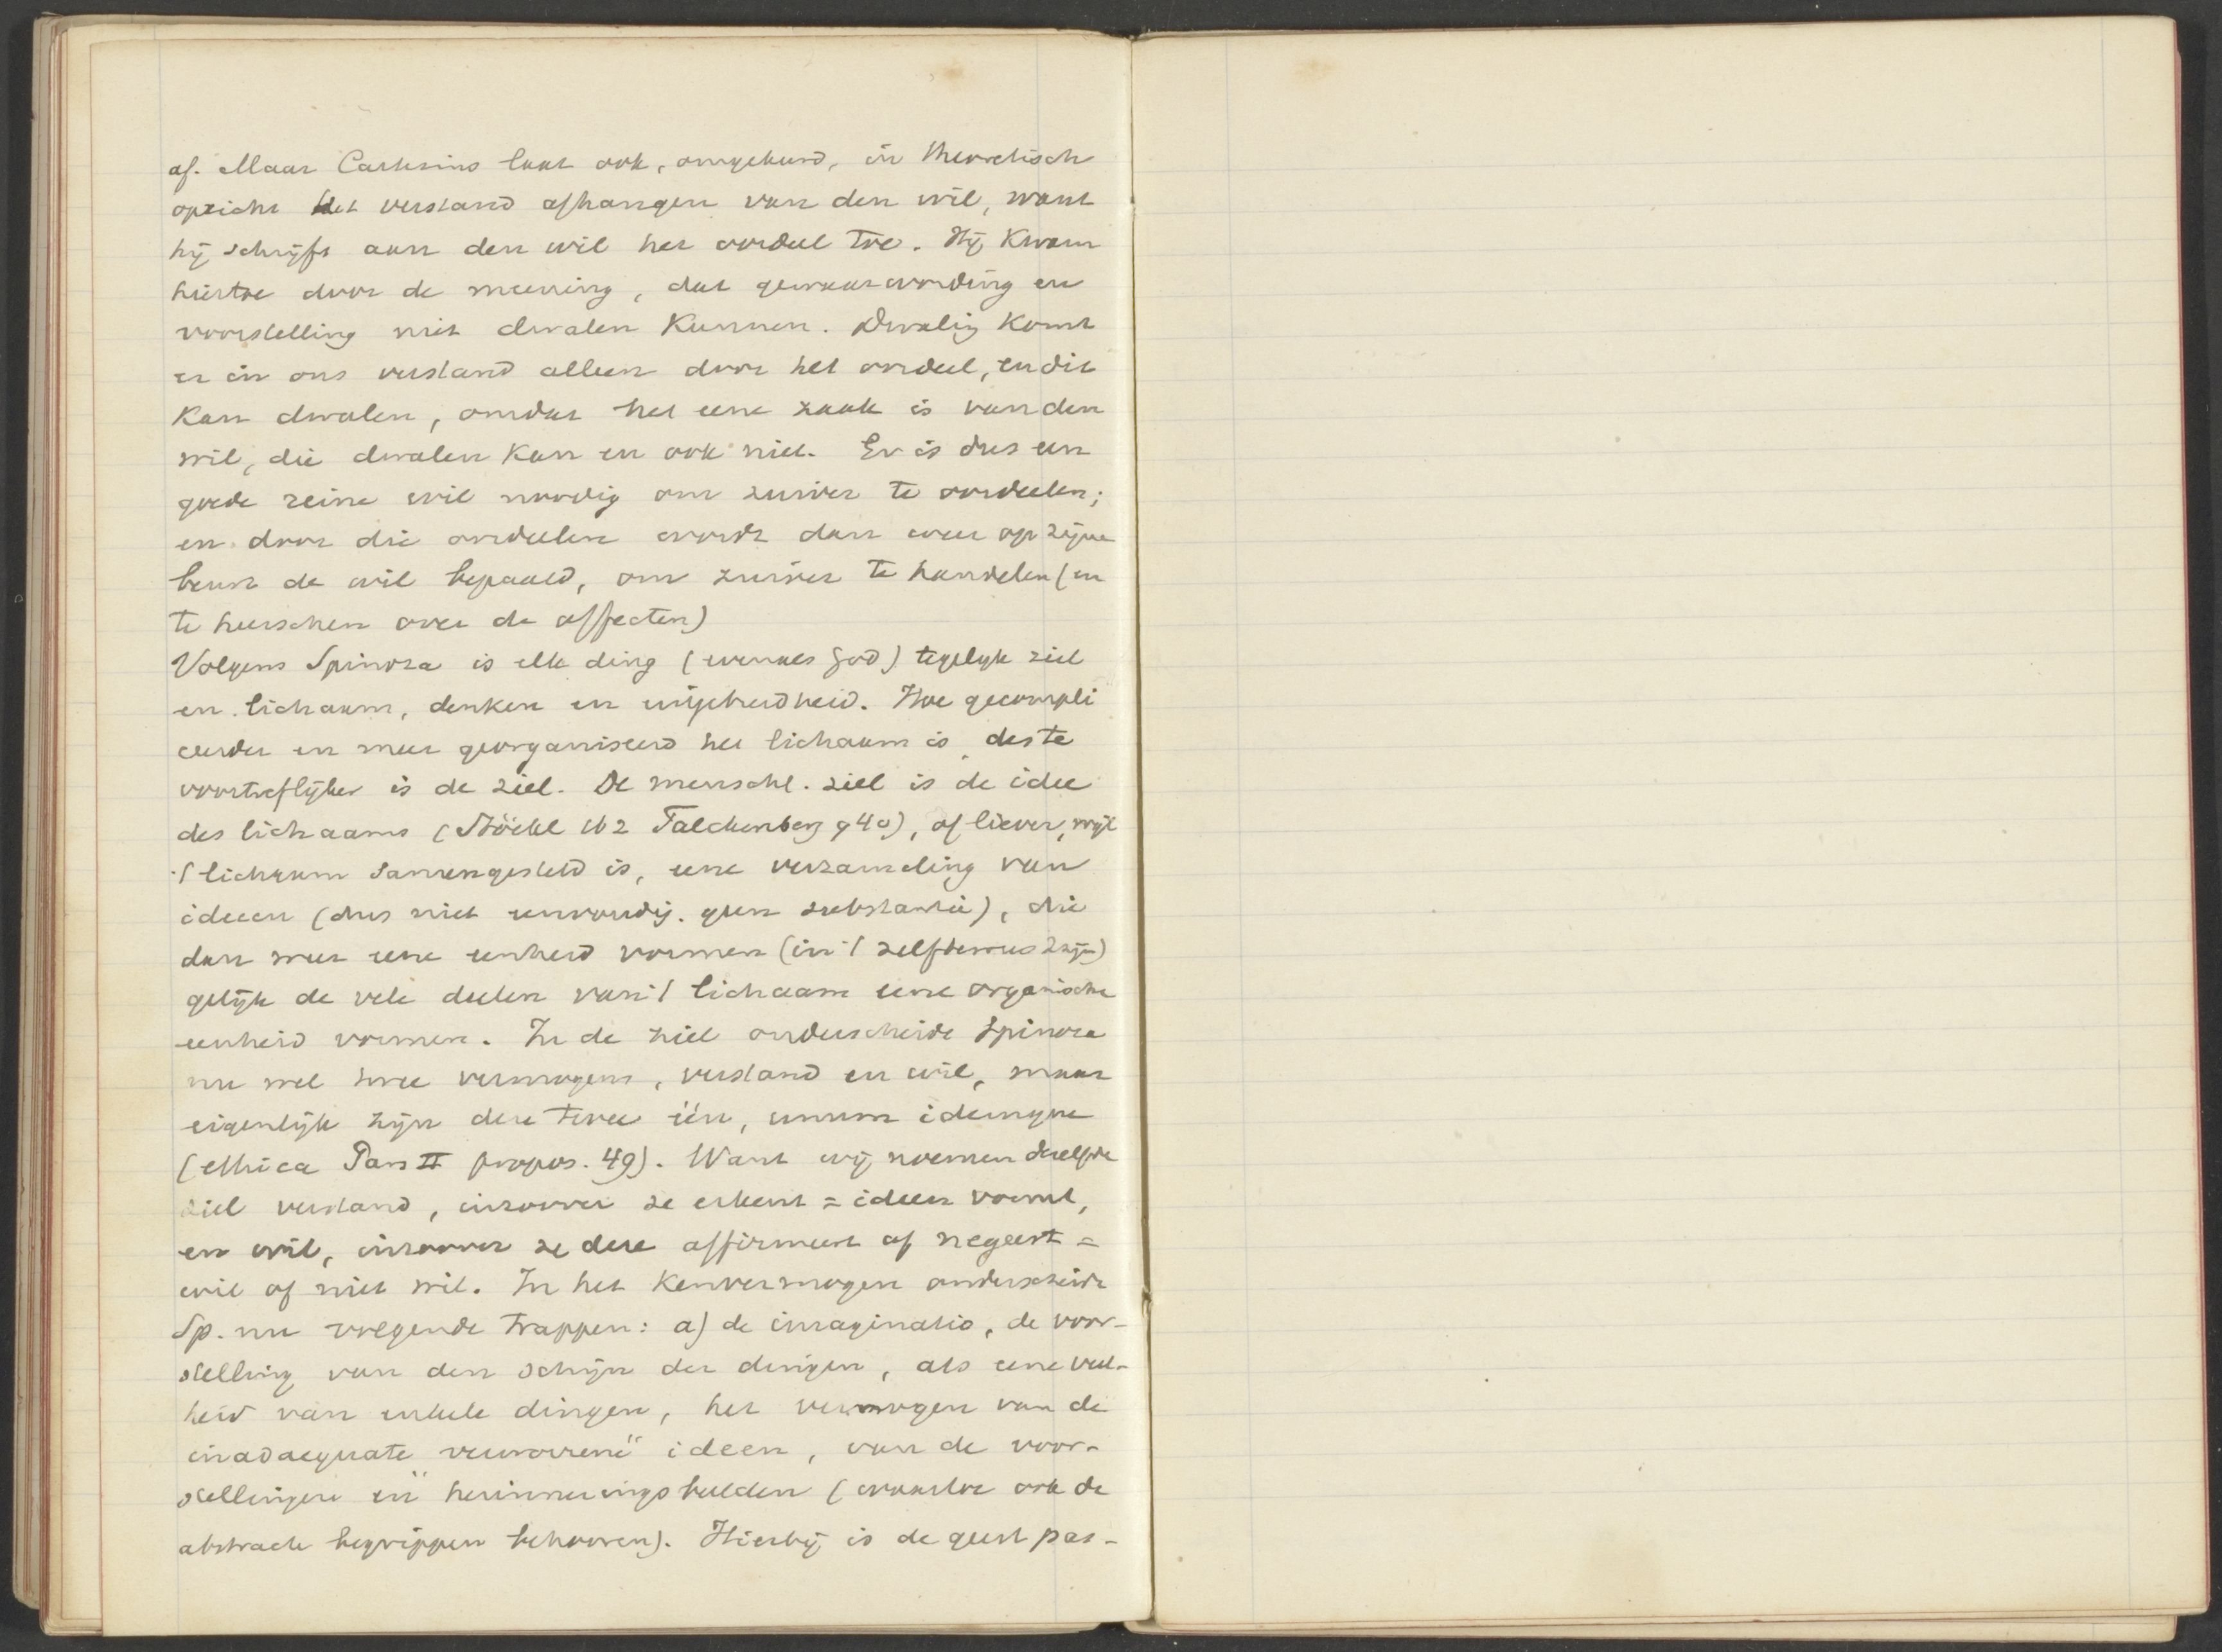 af. Maar Cartesius laat ook, omgekeerd, in theoretisch
opzicht het verstand afhangen van den wil, want
hij schrijft aan den wil het oordeel toe. Hij kwam
hiertoe door de meening, dat gewaarwording en
voorstelling niet dwalen kunnen. Dwaling komt
er in ons verstand alleen door het oordeel, en dit
kan dwalen, omdat het eene zaak is van den
wil, die dwalen kan en ook niet. Er is dus een
goede reine wil noodig om zuiver te oordeelen;
en door die oordeelen wordt dan weer op zijne
beurt de wil bepaald, om zuiver te handelen (en
te heerschen over de affecten)
Volgens Spinoza is elk ding (evenals God) tegelijk ziel
en lichaam, denken en uitgebreidheid. Hoe gecompli
ceerder en meer georganiseerd het lichaam is, des te
voortreflijker is de ziel. De menschl. ziel is de idee
des lichaams (Stöckl 162 Falckenberg 940), of liever, wijl
't lichaam samengesteld is, eene verzameling van
ideeen (dus niet eenvoudig. geen substantie), die
dan weer eene eenheid vormen (in 't zelfbewustzijn)
gelijk de vele deelen van 't lichaam eene organische
eenheid vormen. In de ziel onderscheidt Spinoza
nu wel twee vermogens, verstand en wil, maar
eigenlijk zijn deze twee één, unum idemque
(ethica Pars II propos. 49). Want wij noemen dezelfde
ziel verstand, inzoover ze erkent = ideen vormt,
en wil, inzoover ze deze affirmeert of negeert =
wil of niet wil. In het kenvermogen onderscheidt
Sp. nu volgende trappen: a) de imaginatio, de voor-
stelling van den schijn der dingen, als eene veel-
heid van enkele dingen, het vermogen van de
inadaequate "verworrene" ideen, van de voor-
stellingen en herinneringsbeelden (waartoe ook de
abstracte begrippen behooren). Hierbij is de geest pas-